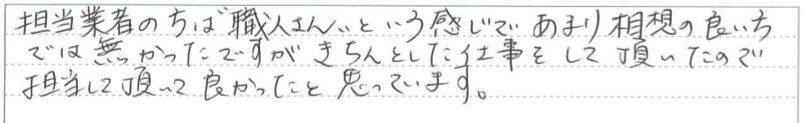 担当業者の方は"職人さん"という感じで あまり相想の良い方
では無かったですが きちんとした仕事をして頂いたので
担当して頂いて良かったと思っています。